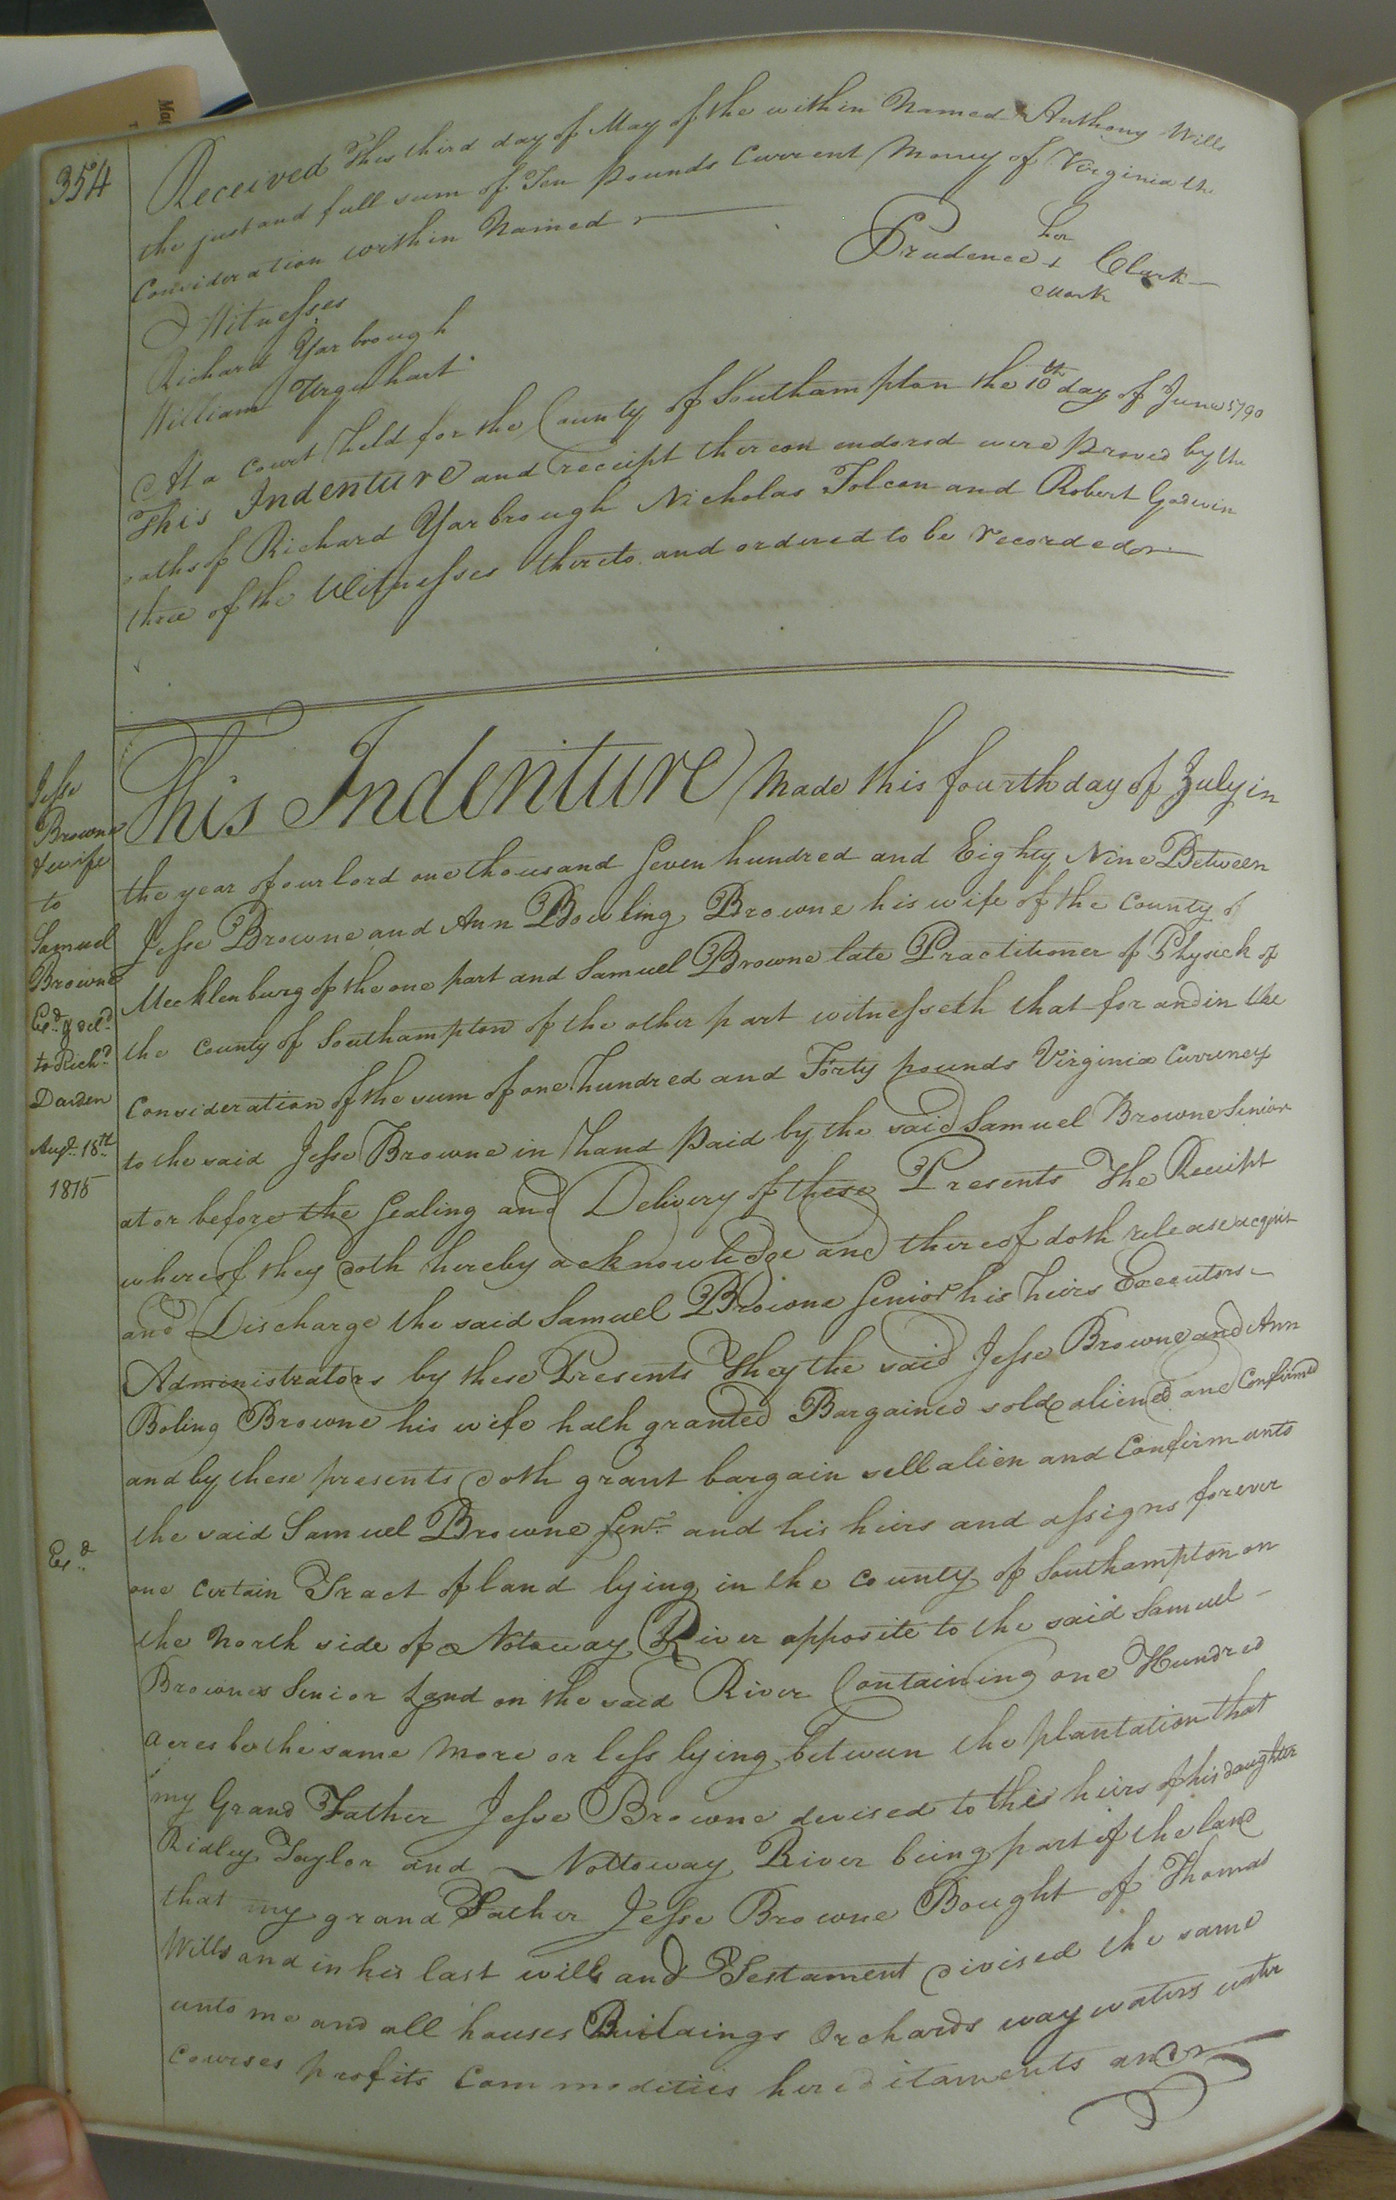 354
Received this third day of May of the within Named Anthony Wills
the just and full sum of Ten pounds Current Money of Virginia the
Consideration within Named
her
Prudence + Clark
mark
Witnesses
Richard Yarbrough
William Urquhart
At a Court held for the County of Southampton the 10th day of June 1790
This Indenture and receipt thereon endorsed were proved by the
oaths of Richard Yarbrough Nicholas Folcon and Robert Godwin
three of the Witnesses thereto and ordered to be recorded
Jesse
Browne
& wife
to
Samuel
Browne
Exd. & deld.
to Richd.
Darden
Augt. 18th
1815
Exd.
This Indenture Made this fourth day of July in
the year of our lord one thousand Seven hundred and Eighty Nine Between
Jesse Browne and Ann Bowling Browne his wife of the County of
Mecklenburg of the one part and Samuel Browne late Practitioner of Physick of
the County of Southampton of the other part witnesseth that for and in the
Consideration of the sum of one hundred and Forty pounds Virginia Currency
to the said Jesse Browne in hand paid by the said Samuel Browne Senior
at or before the Sealing and Delivery of these Presents The Receipt
whereof they doth hereby acknowledge and thereof doth release acquit
and Discharge the said Samuel Browne Senior his heirs Executors
Administrators by these Presents They the said Jesse Browne and Ann
Boling Browne his wife hath granted Bargained sold aliened and Confirmed
and by these presents doth grant bargain sell alien and Confirm unto
the said Samuel Browne Senr. and his heirs and assigns forever
one certain Tract of land lying in the county of Southampton on
the North side of Notoway River opposite to the said Samuel
Brownes Senior Land on the said River Containing one Hundred
acres be the same more or less lying between the plantation that
my Grand Father Jesse Browne devised to the heirs of his daughter
Ridley Taylor and Nottoway River being part of the land
that my grand Father Jesse Browne Bought of Thomas
Wills and in his last will and Testament divised the same
unto me and all houses Buildings Orchards way waters water
courses profits Commodities hereditaments and